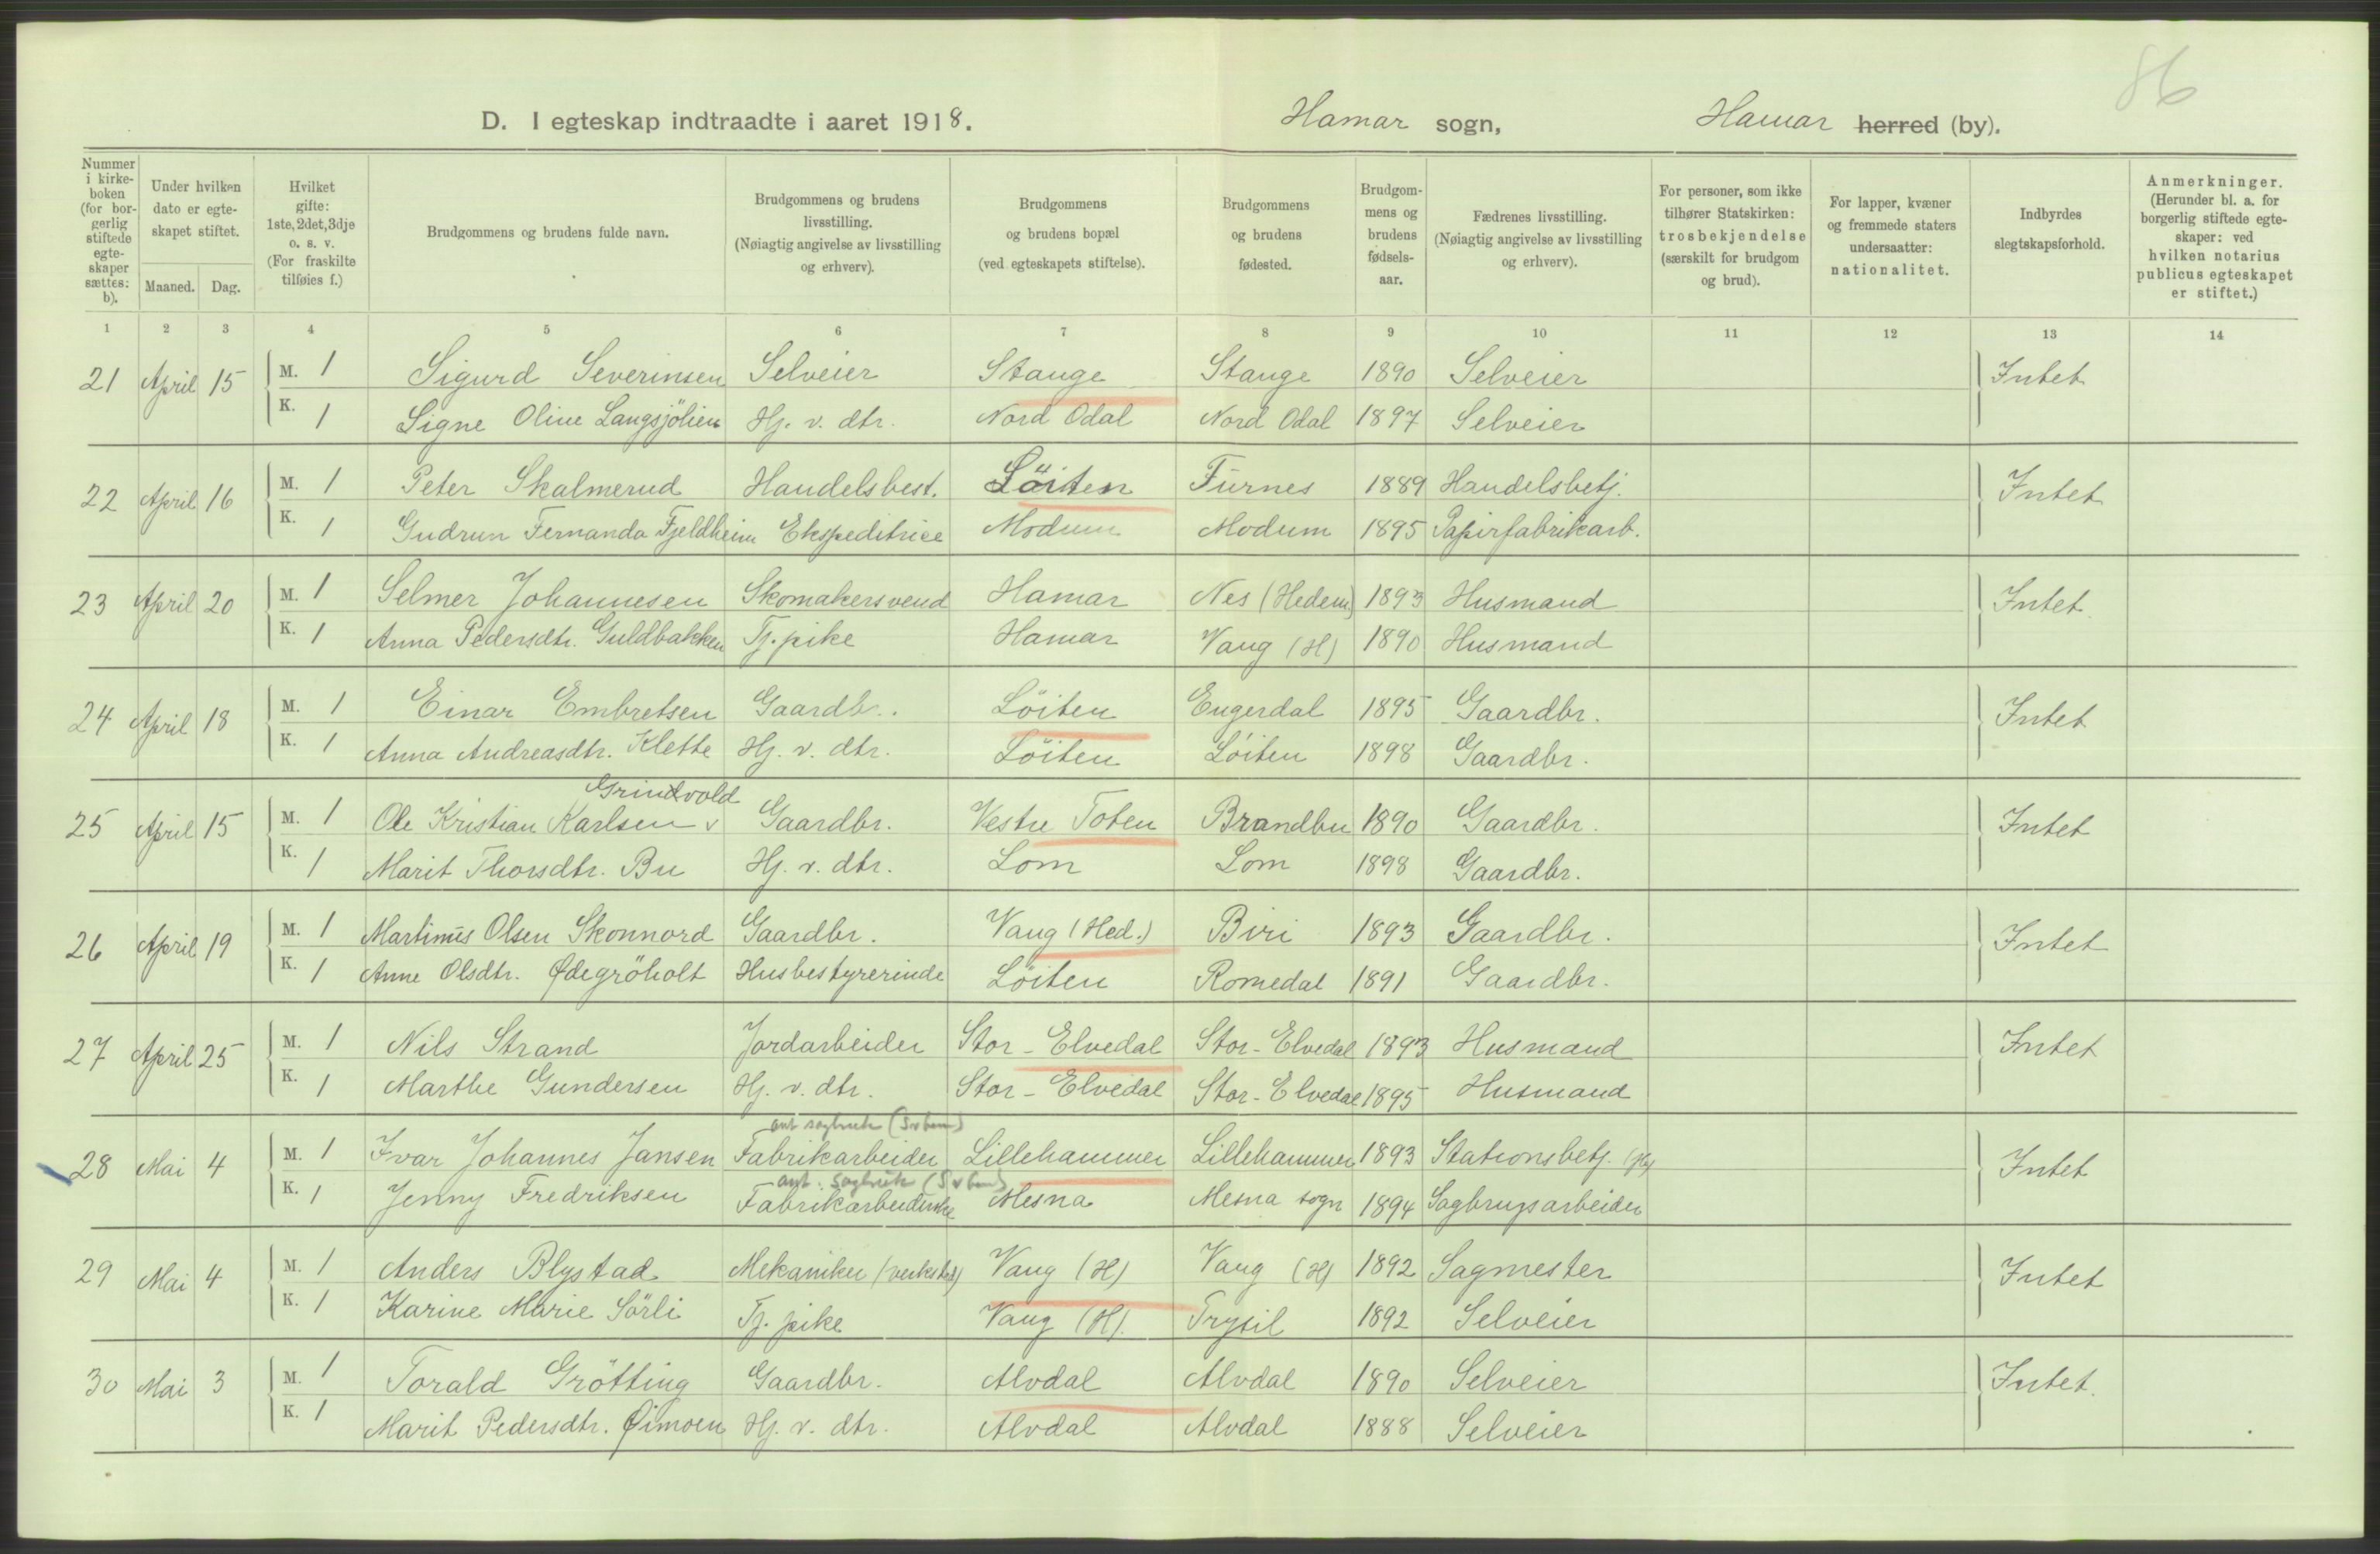 86
D. I egteskap indtraadte i aaret 1918. Hamar sogn, Hamar herred (by).
Nummer i kirkeboken (for borgerlig stiftede egteskaper sættes: b).
Under hvilken dato er egteskapet stiftet.
Maaned. Dag.
Hvilket gifte: 1ste, 2det, 3dje o. s. v. (For fraskilte tilføies f.)
Brudgommens og brudens fulde navn.
Brudgommens og brudens livsstilling. (Nøiagtig angivelse av livsstilling og erhverv).
Brudgommens og brudens bopæl (ved egteskapets stiftelse).
Brudgommens og brudens fødested.
Brudgommens og brudens fødselsaar.
Fædrenes livsstilling. (Nøiagtig angivelse av livsstilling og erhverv).
For personer, som ikke tilhører Statskirken: trosbekjendelse (særskilt for brudgom og brud).
For lapper, kvæner og fremmede staters undersaatter: nationalitet.
Indbyrdes slegtskapsforhold.
Anmerkninger. (Herunder bl. a. for borgerlig stiftede egteskaper: ved hvilken notarius publicus egteskapet er stiftet.)
1 2 3 4 5 6 7 8 9 10 11 12 13 14
21 April 15 M. 1 Sigurd Severinsen Selveier Stange Stange 1890 Selveier Intet
K. 1 Signe Oline Langsjölien Hj. v. dtr. Nord Odal Nord Odal 1897 Selveier
22 April 16 M. 1 Peter Skalmerud Handelsbest. Löiten Furnes 1889 Handelsbetj. Intet
K. 1 Gudrun Fernanda Fjeldheim Ekspeditrice Modum Modum 1895 Papirfabrikarb.
23 April 20 M. 1 Selmer Johannesen Skomakersvend Hamar Nes (Hedem) 1893 Husmand Intet
K. 1 Anna Pedersdtr. Guldbakken Tj. pike Hamar Vang (H) 1890 Husmand
24 April 18 M. 1 Einar Embretsen Gaardbr. Löiten Engerdal 1895 Gaardbr. Intet
K. 1 Anna Andreasdtr. Klette Hj. v. dtr. Löiten Löiten 1898 Gaardbr.
Grindvold
25 April 15 M. 1 Ole Kristian Karlsen v Gaardbr. Vestre Toten Brandbu 1890 Gaardbr. Intet
K. 1 Marit Thorsdtr. Bu Hj. v. dtr. Lom Lom 1898 Gaardbr.
26 April 19 M. 1 Martinus Olsen Skonnord Gaardbr. Vang (Hed.) Biri 1893 Gaardbr. Intet
K. 1 Anne Olsdtr. Ødegröholt Husbestyrerinde Löiten Romedal 1891 Gaardbr.
27 April 25 M. 1 Nils Strand Jordarbeider Stor-Elvedal Stor-Elvedal 1893 Husmand Intet
K. 1 Marthe Gundersen Hj. v. dtr. Stor-Elvedal Stor-Elvedal 1895 Husmand
28 Mai 4 M. 1 Ivar Johannes Jansen Fabrikarbeider Lillehammer Lillehammer 1893 Stationsbetj. Intet
K. 1 Jenny Fredriksen Fabrikarbeiderske Mesna Mesna sogn 1894 Sagbrugsarbeider
29 Mai 4 M. 1 Anders Blystad Mekaniker (verksted) Vang (H) Vang (H) 1892 Sagmester Intet
K. 1 Karine Marie Sörli Tj. pike Vang (H). Trysil 1892 Selveier
30 Mai 3 M. 1 Torald Grötting Gaardbr. Alvdal Alvdal 1890 Selveier Intet.
K. 1 Marit Pedersdtr. Øimoen Hj. v. dtr. Alvdal Alvdal 1888 Selveier